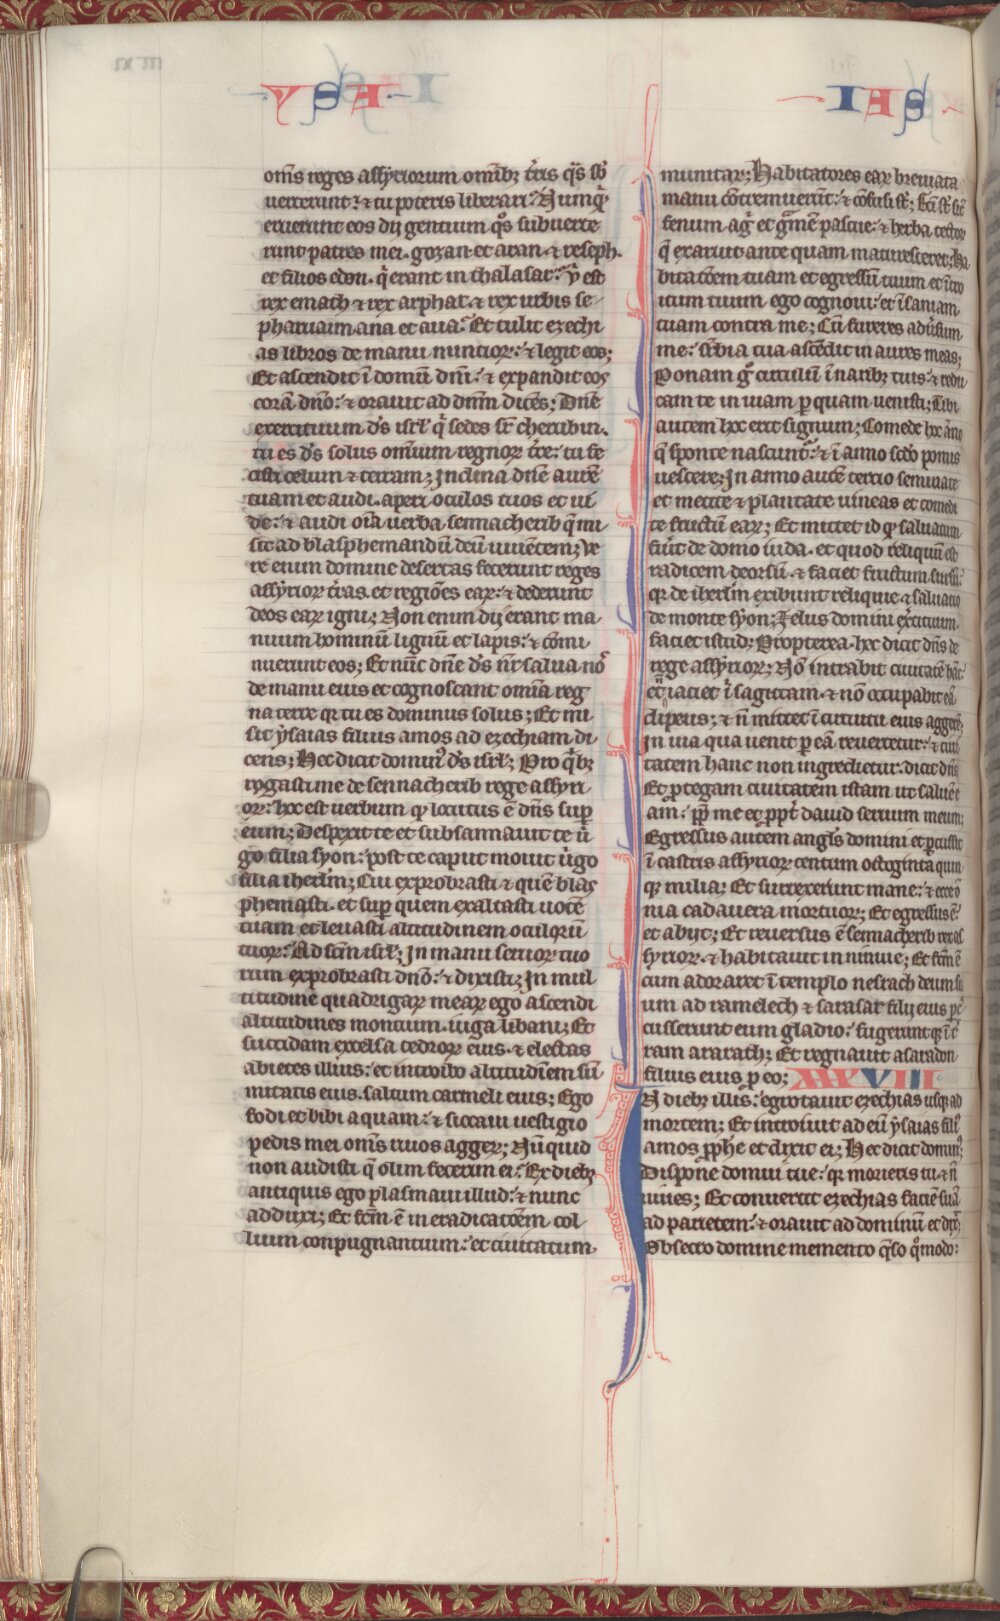 YSA IAS
om̄s reges assyriorum omībꝫ t̄ris q̄s s̄b
uerterunt: ⁊ tu poteris liberari? Nunq̇
eruerunt eos dij gentium q̊s subuerte
runt patres mei. gozan et aran. ⁊ reseph.
et filios eden. q̇ erant in thalasar? Ỿ est
rex emach ⁊ rex arphat. ⁊ rex urbis se
pharuaim ana et aua? Et tulit ezechi
as libros de manu nuntioꝝ: ⁊ legit eos;
Et ascendit ī domū dnī: ⁊ expandit eos
corā dn̄o: ⁊ orauit ad dn̄m dicēs; Dn̄e
exercituum d̄s isrl̄ q̇ sedes sr̄ cherubin.
tu es d̄s solus omīum regnoꝝ t̄re: tu fe
cisti celum et terram; Inclina dn̄e aurē
tuam et audi. aperi oculos tuos et ui
de: ⁊ audi oīa uerba sennacherib q̄ mi
sit ad blasphemandū deū uiuētem; Ve
re enim domine desertas fecerunt reges
assyrioꝝ t̄ras. et regiōes eaꝝ: ⁊ dederunt
deos eaꝝ igni; Non enim dij erant. ma
nuum hominū lignū et lapis: ⁊ cōmi
nuerunt eos; Et nūc dn̄e d̄s nr̄ salua nos
de manu eius et cognoscant omīa reg
na terre qꝛ tu es dominus solus; Et mi
sit ysaias filius amos ad ezechiam di
cens; Hec dicit domin᷒ d̄s isrl̄; Pro q̇bꝫ
rogasti me de sennacherib rege assyri
oꝝ: hoc est uerbum qd̄ locutus ē dn̄s suꝑ
eum; Despexit te et subsannauit te ũ
go filia syon: post te caput mouit ũgo
filia iherlm̄; Cui exprobrasti ⁊ quē blas
phemasti. et suꝑ quem exaltasti uocē
tuam et leuasti altitudinem oculorū
tuoꝝ? Ad scm̄ isrl̄; In manu seruoꝝ tuo
rum exprobrasti dn̄o: ⁊ dixisti; In mul
titudine quadrigaꝝ meaꝝ ego ascendi
altitudines montium. iuga libani; Et
succidam excelsa cedroꝝ eius. ⁊ electas
abietes illius: et introibo altitudīem sū
mitatis eius. saltum carmeli eius; Ego
fodi et bibi aquam: ⁊ siccaui uestigio
pedis mei om̄s riuos aggeꝝ; Nūquid
non audisti q̄ olim fecerim ei? Ex diebꝫ
antiquis ego plasmaui illud: ⁊ nunc
adduxi; Et fcm̄ ē in eradicatōem col
lium conpugnantium: et ciuitatum
munitaꝝ; Habitatores eaꝝ breuiata
manu cōtremuerūt: ⁊ cōfusi st̄; Fc̄i st̄ sic̄
fenum agͥ et gͣmē pascue: ⁊ herba tectoꝝ
q̄ exaruit ante quam maturesceret; Ha
bitatōem tuam et egressū tuum et ītro
itum tuum ego cognoui: et īsaniam
tuam contra me; Cū fureres adũsum
me: suꝑbia tua ascēdit in aures meas;
Ponam g̊ circulū ī naribꝫ tuis: ⁊ redu
cam te in uiam ꝑ quam uenisti; Tibi
autem hoc erit signum; Comede hoc āno
q̄ sponte nascunt᷑: ⁊ ī anno scdo pomis
uescere; In anno autē tercio seminate
et metite ⁊ plantate uineas et comedi
te fructū eaꝝ; Et mittet id qd̄ saluatum
fũit de domo iuda. et quod reliquū est
radicem deorsū. ⁊ faciet fructum sursū:
qꝛ de iherlm̄ exibunt reliquie. ⁊ saluatio
de monte syon; Zelus domini ex̄cituum
faciet istud; Propterea. hec dicit dn̄s de
rege assyrioꝝ; Nō intrabit ciuitatē hāc:
et nͦ iaciet ī sagittam. ⁊ nō occupabit eā
clipeus; ⁊ n̄ mittet ī circuitu eius aggerē;
In uia qua uenit ꝑ eā reuertetur: ⁊ ciui
tatem hanc non ingredietur. dicit dn̄s
Et ꝓtegam ciuitatem istam ut saluē e
am: ꝓp̄ me et ꝓpt̄ dauid seruum meum;
Egressus autem angls̄ domini et ꝑcussit
ī castris assyrioꝝ centum octoginta quin
qꝫ milia; Et surrexerunt mane: ⁊ ecce o
nia cadauera mortuoꝝ; Et egressus ē:
et abijt; Et reuersus ē sennacherib rex as
syrioꝝ. ⁊ habitauit in niniue; Et fcm̄ ē
cum adoraret ī templo nesrach deum su
um ad ramelech ⁊ sarasar filij eius ꝑ
cusserunt eum gladio: fugeruntqꝫ ī t̄
ram ararath; Et regnauit asaradon
filius eius ꝑ eo; XXXVIII
N diebꝫ illis: egrotauit ezechias usqꝫ ad
mortem; Et introiuit ad eū ysaias fili᷒
amos ꝓphe et dixit ei; Hec dicit domin᷒;
Dispone domui tue: qꝛ morieris tu. ⁊ n̄
uiues; Et conuertit ezechias faciē suā
ad parietem: ⁊ orauit ad dominū et dix̄;
Obsecro domine memento q̄so q̊modo: